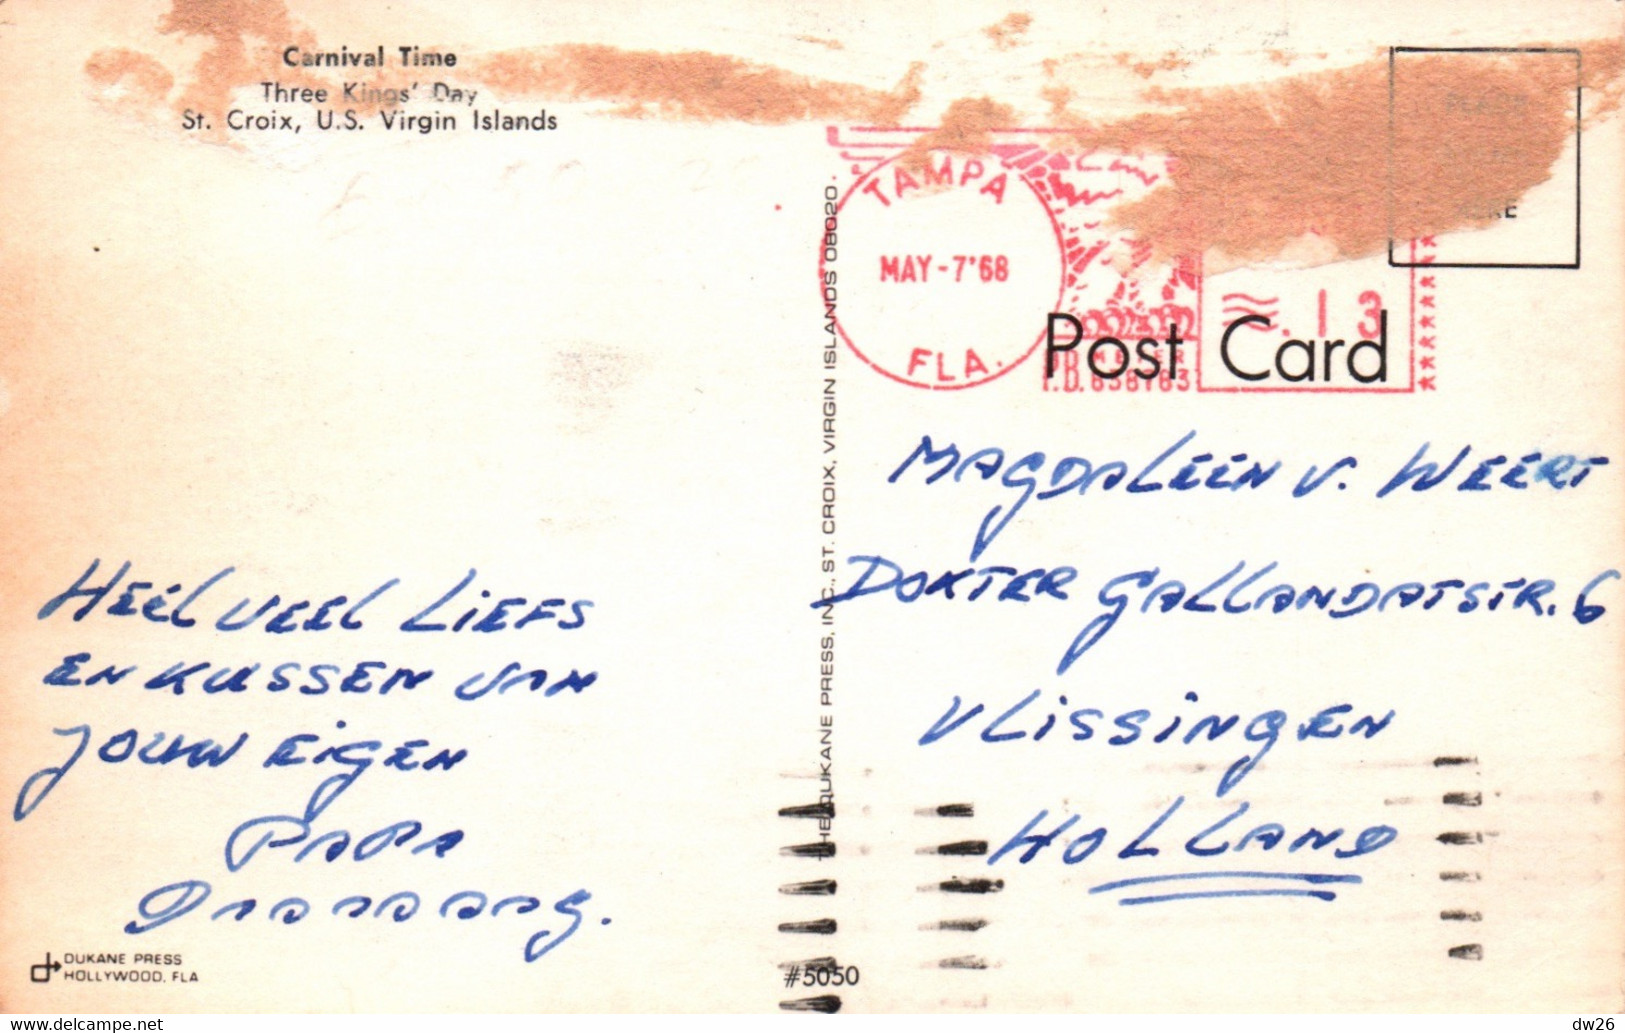 Carnival Time
Three Kings' Day
St. Croix, U.S. Virgin Islands
TAMPA
MAY-7'68
FLA.
.13
METER
HERE
Post Card
THE DUKANE PRESS, INC., ST. CROIX, VIRGIN ISLANDS 08020.
HEEL VEEL LIEFS
EN KUSSEN VAN
JOUW EIGEN
PAPA
MAGDALEEN V. WEERT
DOKTER GALLANDATSTR. 6
VLISSINGEN
HOLLAND
DUKANE PRESS
HOLLYWOOD, FLA
#5050
dw26
www.delcampe.net